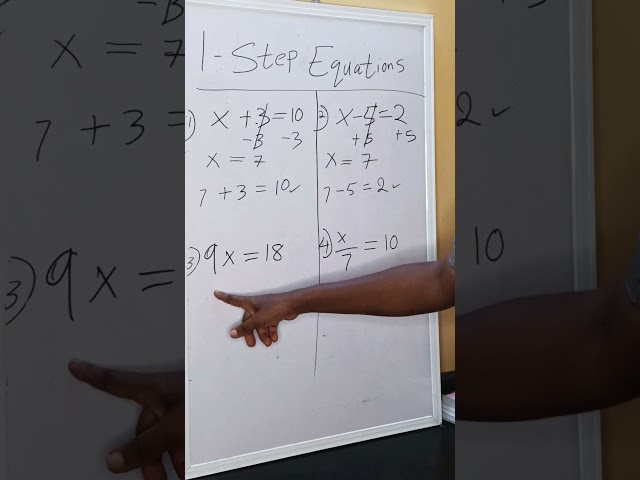 1-Step Equations
1) x + 3 = 10
-3 -3
x = 7
7 + 3 = 10 ✓
2) x - 5 = 2
+5 +5
x = 7
7 - 5 = 2 ✓
3) 9x = 18
4) x/7 = 10